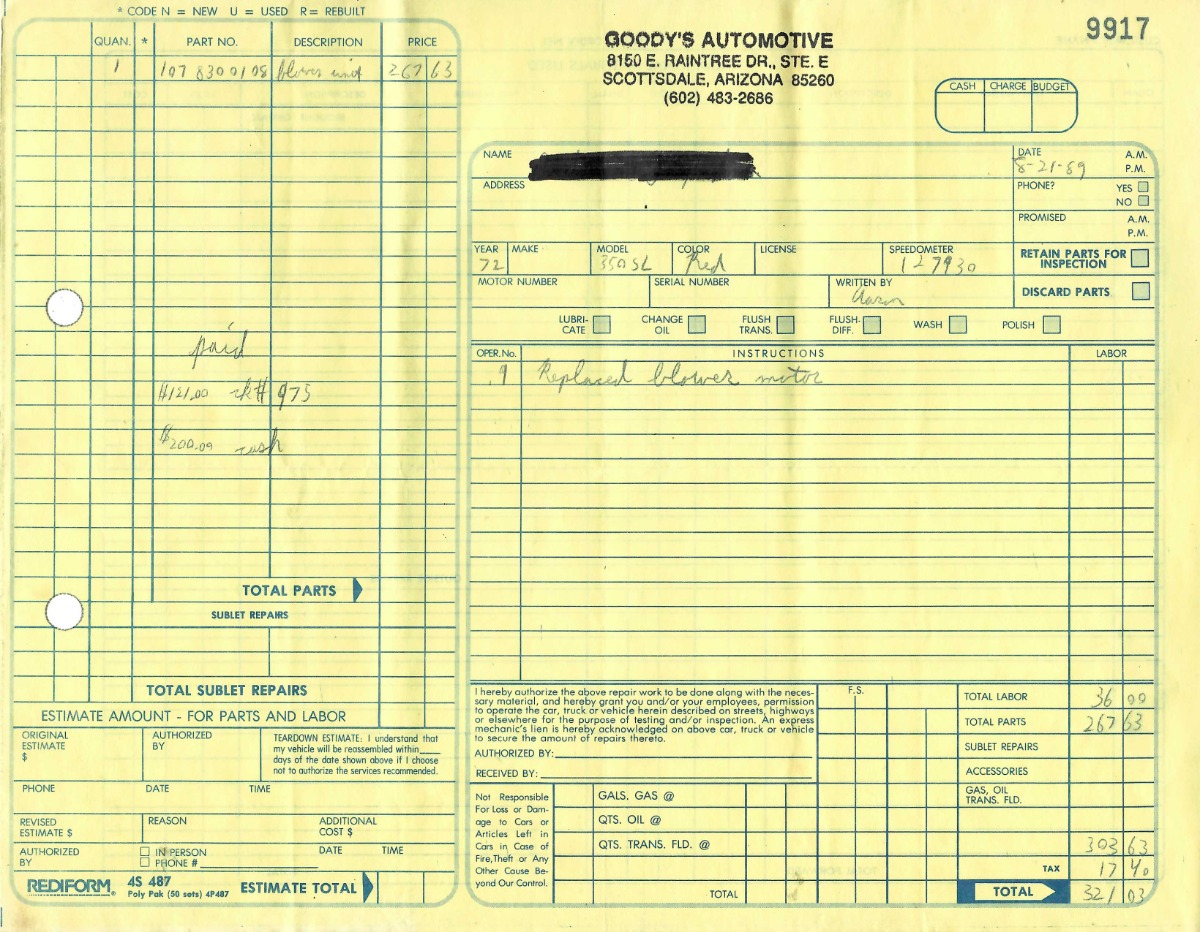 * CODE N = NEW U = USED R = REBUILT
QUAN. * PART NO. DESCRIPTION PRICE
1 107 830 01 08 blower unit 267 63
paid
$121.00 ck# 975
$200.09 cash
TOTAL PARTS
SUBLET REPAIRS
TOTAL SUBLET REPAIRS
ESTIMATE AMOUNT - FOR PARTS AND LABOR
ORIGINAL ESTIMATE $
AUTHORIZED BY
TEARDOWN ESTIMATE: I understand that
my vehicle will be reassembled within____
days of the date shown above if I choose
not to authorize the services recommended.
PHONE DATE TIME
REVISED ESTIMATE $
REASON
ADDITIONAL COST $
AUTHORIZED BY
IN PERSON
PHONE #
DATE TIME
REDIFORM® 4S 487
Poly Pak (50 sets) 4P487
ESTIMATE TOTAL
GOODY'S AUTOMOTIVE
8150 E. RAINTREE DR., STE. E
SCOTTSDALE, ARIZONA 85260
(602) 483-2686
9917
CASH CHARGE BUDGET
NAME
ADDRESS
DATE A.M.
8-21-89 P.M.
PHONE? YES
NO
PROMISED A.M.
P.M.
YEAR MAKE MODEL COLOR LICENSE SPEEDOMETER
72 350 SL Red 127930
RETAIN PARTS FOR INSPECTION
MOTOR NUMBER SERIAL NUMBER WRITTEN BY
Aaron
DISCARD PARTS
LUBRI-CATE CHANGE OIL FLUSH TRANS. FLUSH-DIFF. WASH POLISH
OPER.No. INSTRUCTIONS LABOR
.9 Replaced blower motor
I hereby authorize the above repair work to be done along with the neces-
sary material, and hereby grant you and/or your employees, permission
to operate the car, truck or vehicle herein described on streets, highways
or elsewhere for the purpose of testing and/or inspection. An express
mechanic's lien is hereby acknowledged on above car, truck or vehicle
to secure the amount of repairs thereto.
AUTHORIZED BY:
RECEIVED BY:
Not Responsible
For Loss or Dam-
age to Cars or
Articles Left in
Cars in Case of
Fire, Theft or Any
Other Cause Be-
yond Our Control.
F.S.
GALS. GAS @
QTS. OIL @
QTS. TRANS. FLD. @
TOTAL
TOTAL LABOR 36 00
TOTAL PARTS 267 63
SUBLET REPAIRS
ACCESSORIES
GAS, OIL
TRANS. FLD.
303 63
TAX 17 40
TOTAL 321 03